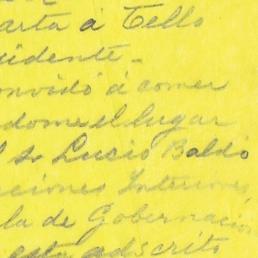 arta á Tello
sidente.
onvidó á comer
ndome el lugar
l sr Lucio Baldó
aciones Interiores,
la de Gobernación
esta adscrito